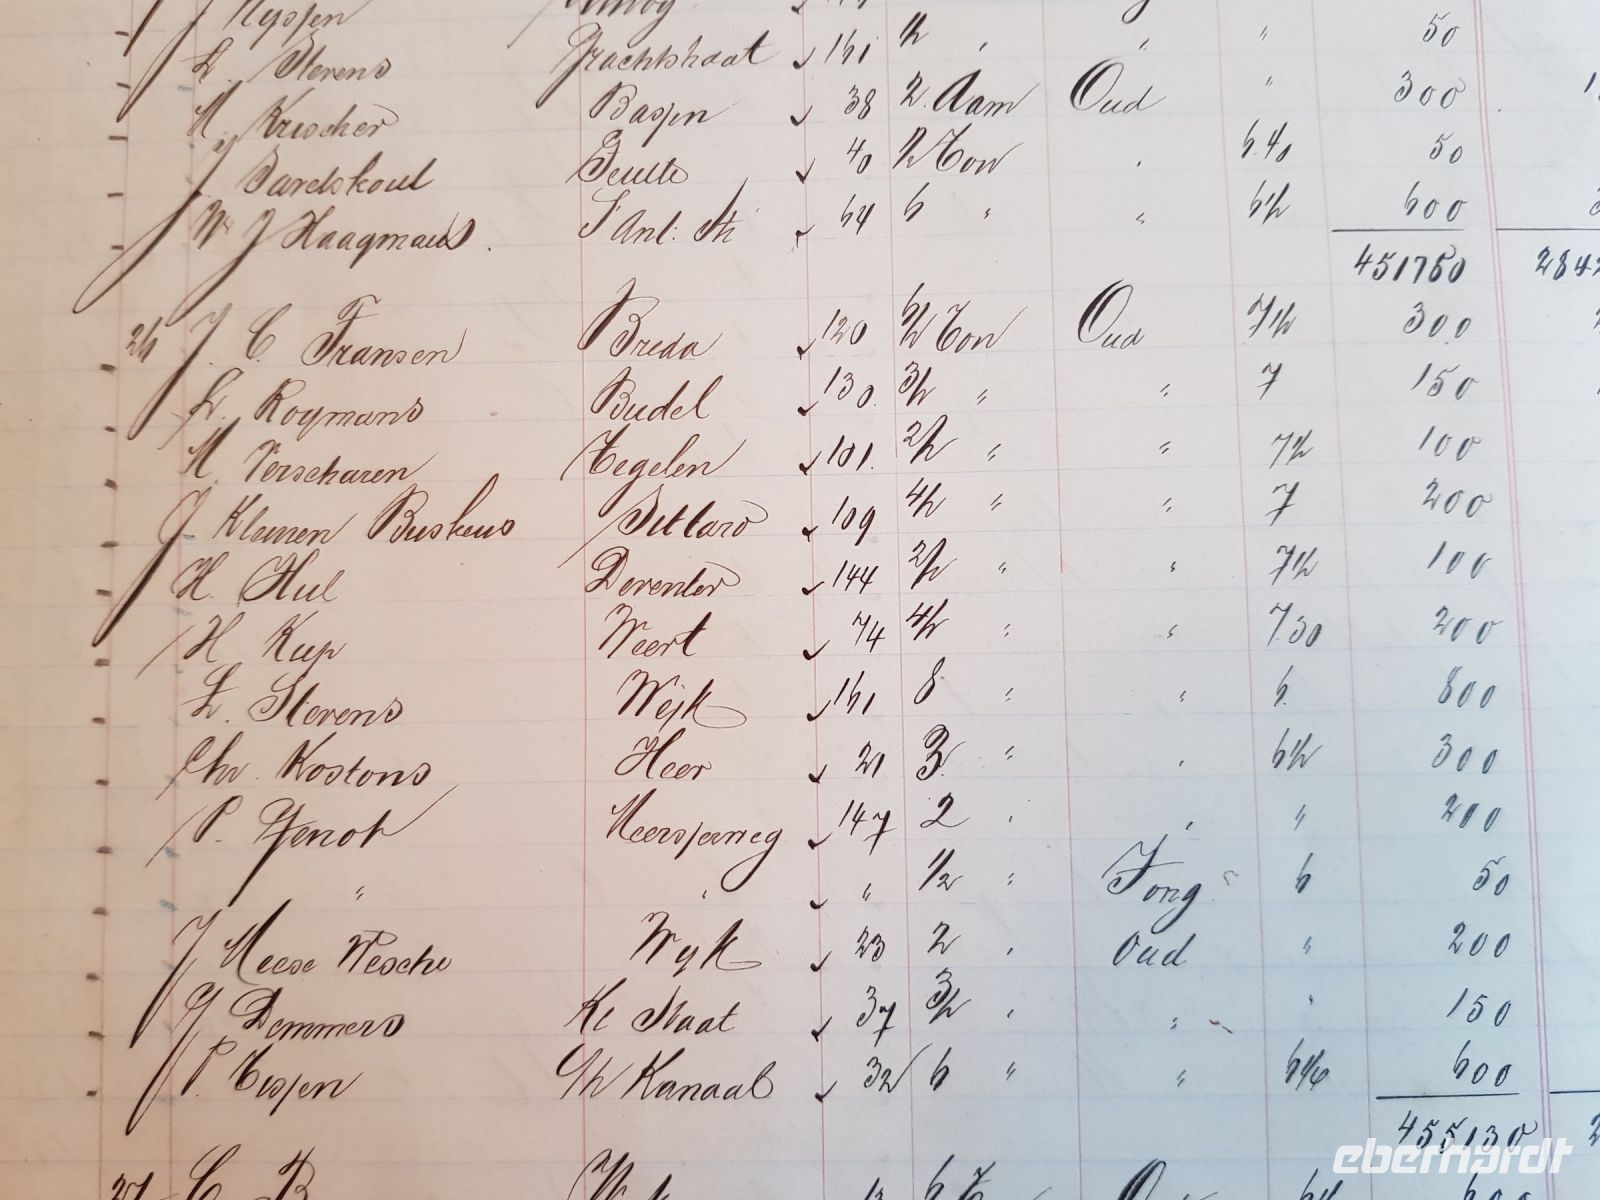 L. Stevens Grachtstraat 161 1/2 " " " 50
M. Krischer Basjen 38 2. Aam Oud " 300
J. Sareloskoul Geulle 40 1/2 Ton " 6.40 50
W J Haagmans St Ant: Str 64 6 " " 6 1/2 600
451750
26 J. C. Fransen Breda 120 6/2 Ton Oud 7 1/2 300
L. Rooymans Budel 130. 3/2 " " 7 150
M. Verscharen Tegelen 101. 2/2 " " 7 1/2 100
J. Klemen Buskens Sittard 109 4/2 " " 7 200
H. Hul Deventer 144 2/2 " " 7 1/2 100
H Kup Weert 74 4/2 " " 7.30 200
L. Stevens Wijk 161 8 " " 6. 800
Chr. Kostons Heer 21 3. " " 6 1/2 300
P. Genot Meerssenweg 147 2 " " " 200
" " " 1/2 " Jong 6 50
J Meese Wesche Wyk 23 2 " Oud " 200
J Demmers Kl Staat 37 3/2 " " " 150
P. Tissen Kanaal 32 6 " " 6 1/2 600
455130
27
eberhardt